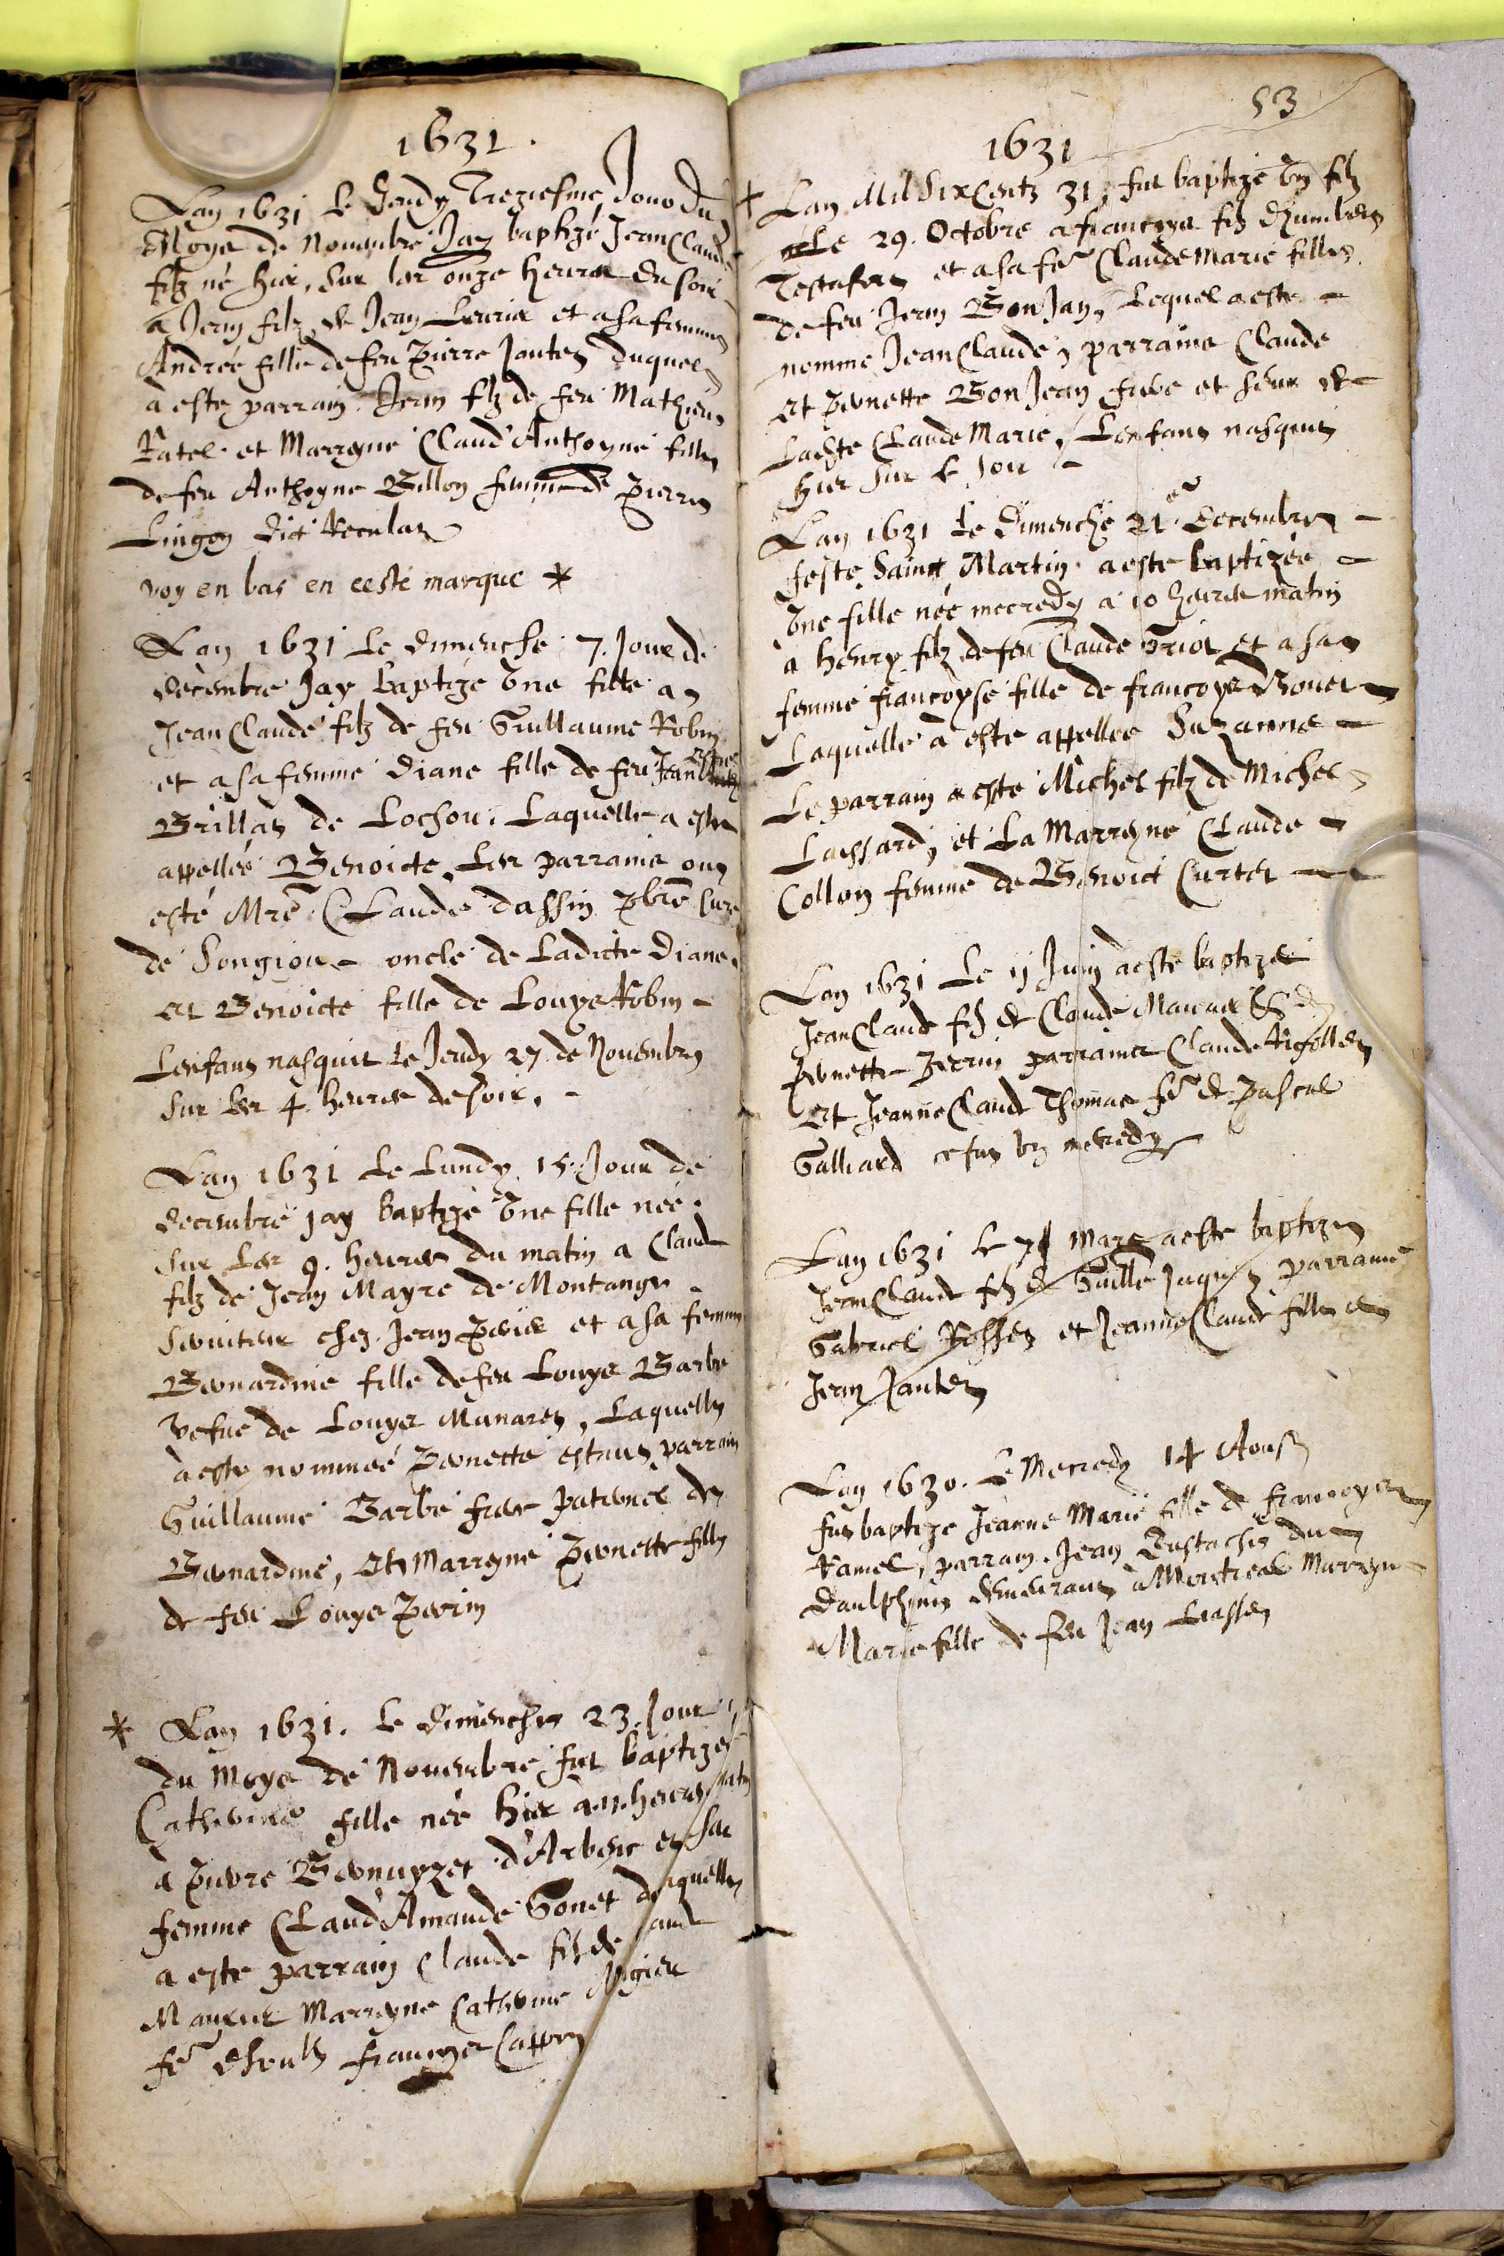 1631.
Lan 1631 le Jeudy Treziesme Jour du
Moys de Nouembre Jay baptizé Jean Claude
filz né hier, sur les onze heures du soir
a Jean filz de Jean et a sa femme
Andrée fille de feu Pierre Jantet duquel
a esté parrain Jean filz de feu Mathieu
Ratel et Marreyne Claud' Anthoyne fille
de feu Anthoyne Billon femme de Pierre
Lingon dict
voy en bas en ceste marque *
Lan 1631 le dimenche 7. Jour de
decembre Jay baptizé Vne fille a
Jean Claude filz de feu Guillaume Robin
et a sa femme diane fille de feu Jean
Brillat de Lochou. Laquelle a esté
appellée Benoicte. Les parrains ont
esté Mre Claude dassin pbre Curé
de Songiou oncle de Ladicte Diane.
et Benoicte fille de Louys Robin
Lenfant nasquit le Jeudy 27. de Nouembre
sur les 4. heures de soir.
Lan 1631 le Lundy 15. Jour de
decembre jay baptizé Vne fille née
sur les 9. heures du matin a Claude
filz de Jean Mayre de Montange
seruiteur chez Jean et a sa femme
Bernardine fille de feu Louys Barbe
vefue de Louys Munaret, Laquelle
a esté nommée Pernette estant parrain
Guillaume Barbe frere paternel de
Bernardine, Et Marreyne Pernette fille
de feu Louys Perrin
* Lan 1631. le dimenche 23. Jour
du Moys de Nouembre fut baptizée
Catherine fille née hier a 11. heures matin
a Pierre Bernuyzet d'Arbent et sa
femme Claud' Amande Gonet de laquelle
a esté parrain Claude filz de
Marreyne Catherine
fe francoys Cappon
53
1631
+ Lan Mil Six Centz 31, fut baptizé Vn filz
le 29. Octobre a francoys filz dhumbert
et a sa fe Claude Marie fille
de feu Jean Bon Jan, Lequel a esté
nommé Jean Claude, parrains Claude
et Pernette Bon Jean frere et seur de
Ladte Claude Marie, Lenfant nasquit
hier sur le soir
Lan 1631 le dimenche 21e decembre
feste Sainct Martin a esté baptizée
Vne fille née mecredy a 10 heures matin
a henry filz de feu Claude et a sa
femme francoyse fille de francoys Bouer
Laquelle a esté appellée Suzanne
Le parrain a esté Michel filz de Michel
Laessard, et La Marreyne Claude
Collon femme de Benoict Curtet
Lan 1631 le 11 Juin a esté baptizé
Jean Claude filz de Claude &
Pernette Perrin parrains Claude
et Jeanne Claude Thomas fe de Pascal
Galliard ce fut vn mecredy
Lan 1631 le 7 Mars a esté baptizé
Jean Claude filz de Guille parrains
Gabriel Rosset et Jeanne Claude fille de
Jean Jantet
Lan 1630. Le Mecredy 14 Aoust
fut baptizé Jeanne Marie fille de francoys
Ramel, parrain Jean Eustache du
daulphine demeurant a Montreal Marreyne
Marie fille de feu Jean